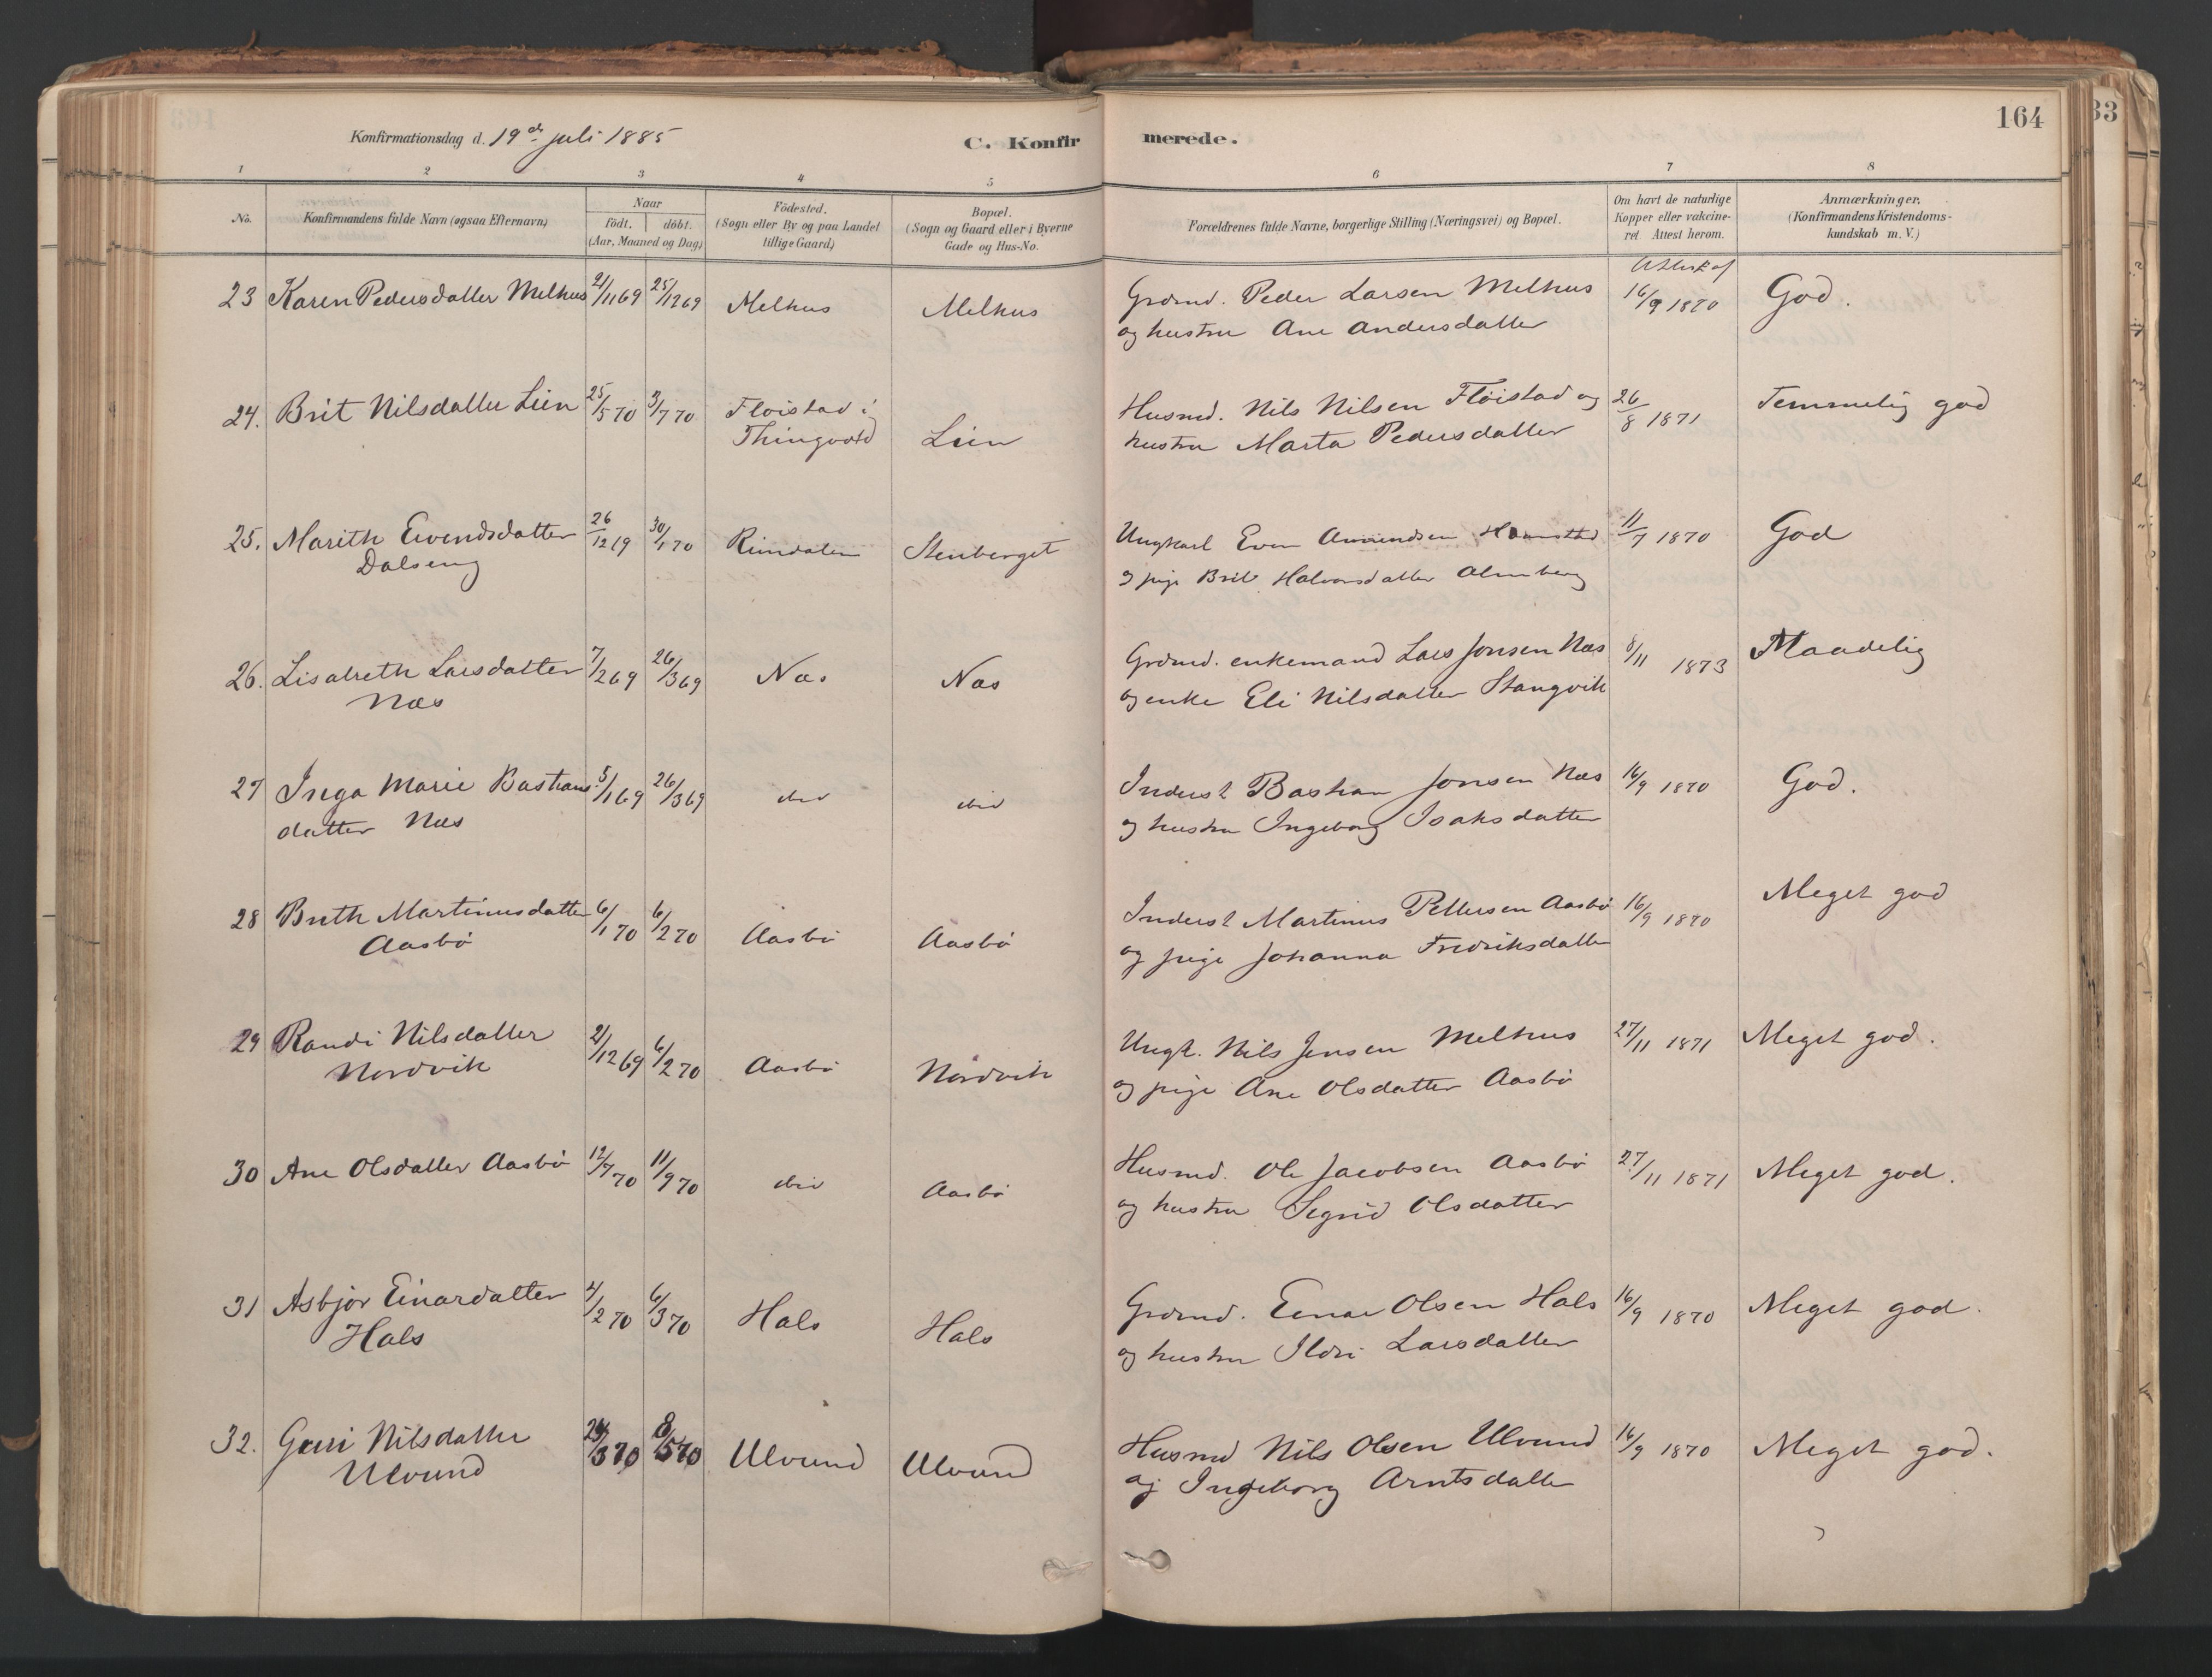 164
33
Konfirmationsdag d. 19de juli 1885
C. Konfirmerede.
1 2 3 4 5 6 7 8
No.
Konfirmandens fulde Navn (ogsaa Efternavn)
Naar
födt. döbt.
(Aar, Maaned og Dag)
Födested.
(Sogn eller By og paa Landet
tillige Gaard)
Bopæl.
(Sogn og Gaard eller i Byerne
Gade og Hus-No.
Forældrenes fulde Navne, borgerlige Stilling (Næringsvei) og Bopæl.
Om havt de naturlige
Kopper eller vakcine-
ret. Attest herom.
Anmærkninger.
(Konfirmandens Kristendoms-
kundskab m. V.)
23 Karen Pedersdatter Melhus 21/11 69 25/12 69 Melhus Melhus Grdmd. Peder Larsen Melhus 16/9 1870 God.
og hustru Ane Andersdatter
24. Brit Nilsdatter Lien 25/5 70 3/7 70 Fløistad i Husmd. Nils Nilsen Fløistad og 26/8 1871 Temmelig god
Thingvold Lien hustru Marta Pedersdatter
25. Marith Evendsdatter 26/12 69 30/1 70 Rindalen Stenberget Ungkarl Even Amundsen 11/7 1870 God
Dalseng og pige Brit Halvorsdatter Almberg
26. Lisabeth Larsdatter 7/2 69 26/3 69 Næs Næs Grdmd. enkemand Lars Jonsen Næs 8/11 1873 Maadelig
Næs og enke Eli Nilsdatter Stangvik
27 Inga Marie Bastians 5/1 69 26/3 69 do do Inderst Bastian Jonsen Næs 16/9 1870 God.
datter Næs og hustru Ingeborg Isaksdatter
28 Brith Martinusdatter 6/1 70 6/2 70 Aasbø Aasbø Inderst Martinus Pettersen Aasbø 16/9 1870 Meget god
Aasbø og pige Johanna Fredriksdatter
29 Randi Nilsdatter 21/12 69 6/2 70 Aasbø Nordvik Ungk. Nils Jensen Melhus 27/11 1871 Meget god.
Nordvik og pige Ane Olsdatter Aasbø
30 Ane Olsdatter Aasbø 12/7 70 11/9 70 do Aasbø Husmd. Ole Jacobsen Aasbø 27/11 1871 Meget god.
og hustru Sigrid Olsdatter
31 Asbjør Einardatter 4/2 70 6/3 70 Hals Hals Grdmd. Einar Olsen Hals 16/9 1870 Meget god.
Hals og hustru Ildri Larsdatter
32. Guri Nilsdatter 24/3 70 8/5 70 Ulvund Ulvund Husmd Nils Olsen Ulvund 16/9 1870 Meget god.
Ulvund og Ingeborg Arntsdatter